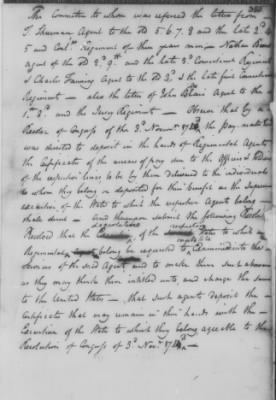 The Committee to whom was referred the letter from
J. Freeman Agent to the 5 6 7 8 and the late 3d 4
5 and Regiment of three years men — Nathan
agent of the 2d and the late 3d Connecticut Regiment
& Charles Fanning Agent to the & the late first Connecticut
Regiment — also the letter of John Blair Agent to the
1st and the Jersey Regiment — Observe that by a
Resolve of Congress of the 3d Novemr the pay master
was directed to deposit in the hands of Regimental Agents
the Certificates of the arrears of pay due to the Officers & Soldiers
of the respective lines to be by them delivered to the individuals
to whom they belong or deposited for their benefit as the Supreme
executive of the State to which the respective Agents belong
shall direct — and thereupon submit the following
Resolved that the executives of the respective State to which
Regimental belong be requested to examine into the
services of the said Agents and to make them such allowance
as they may think them intitled unto, and charge the same
to the United States — that such agents deposit the
Certificates that may remain in their hands with the
Executive of the State to which they belong agreeable to the
Resolution of Congress of 3d Novr